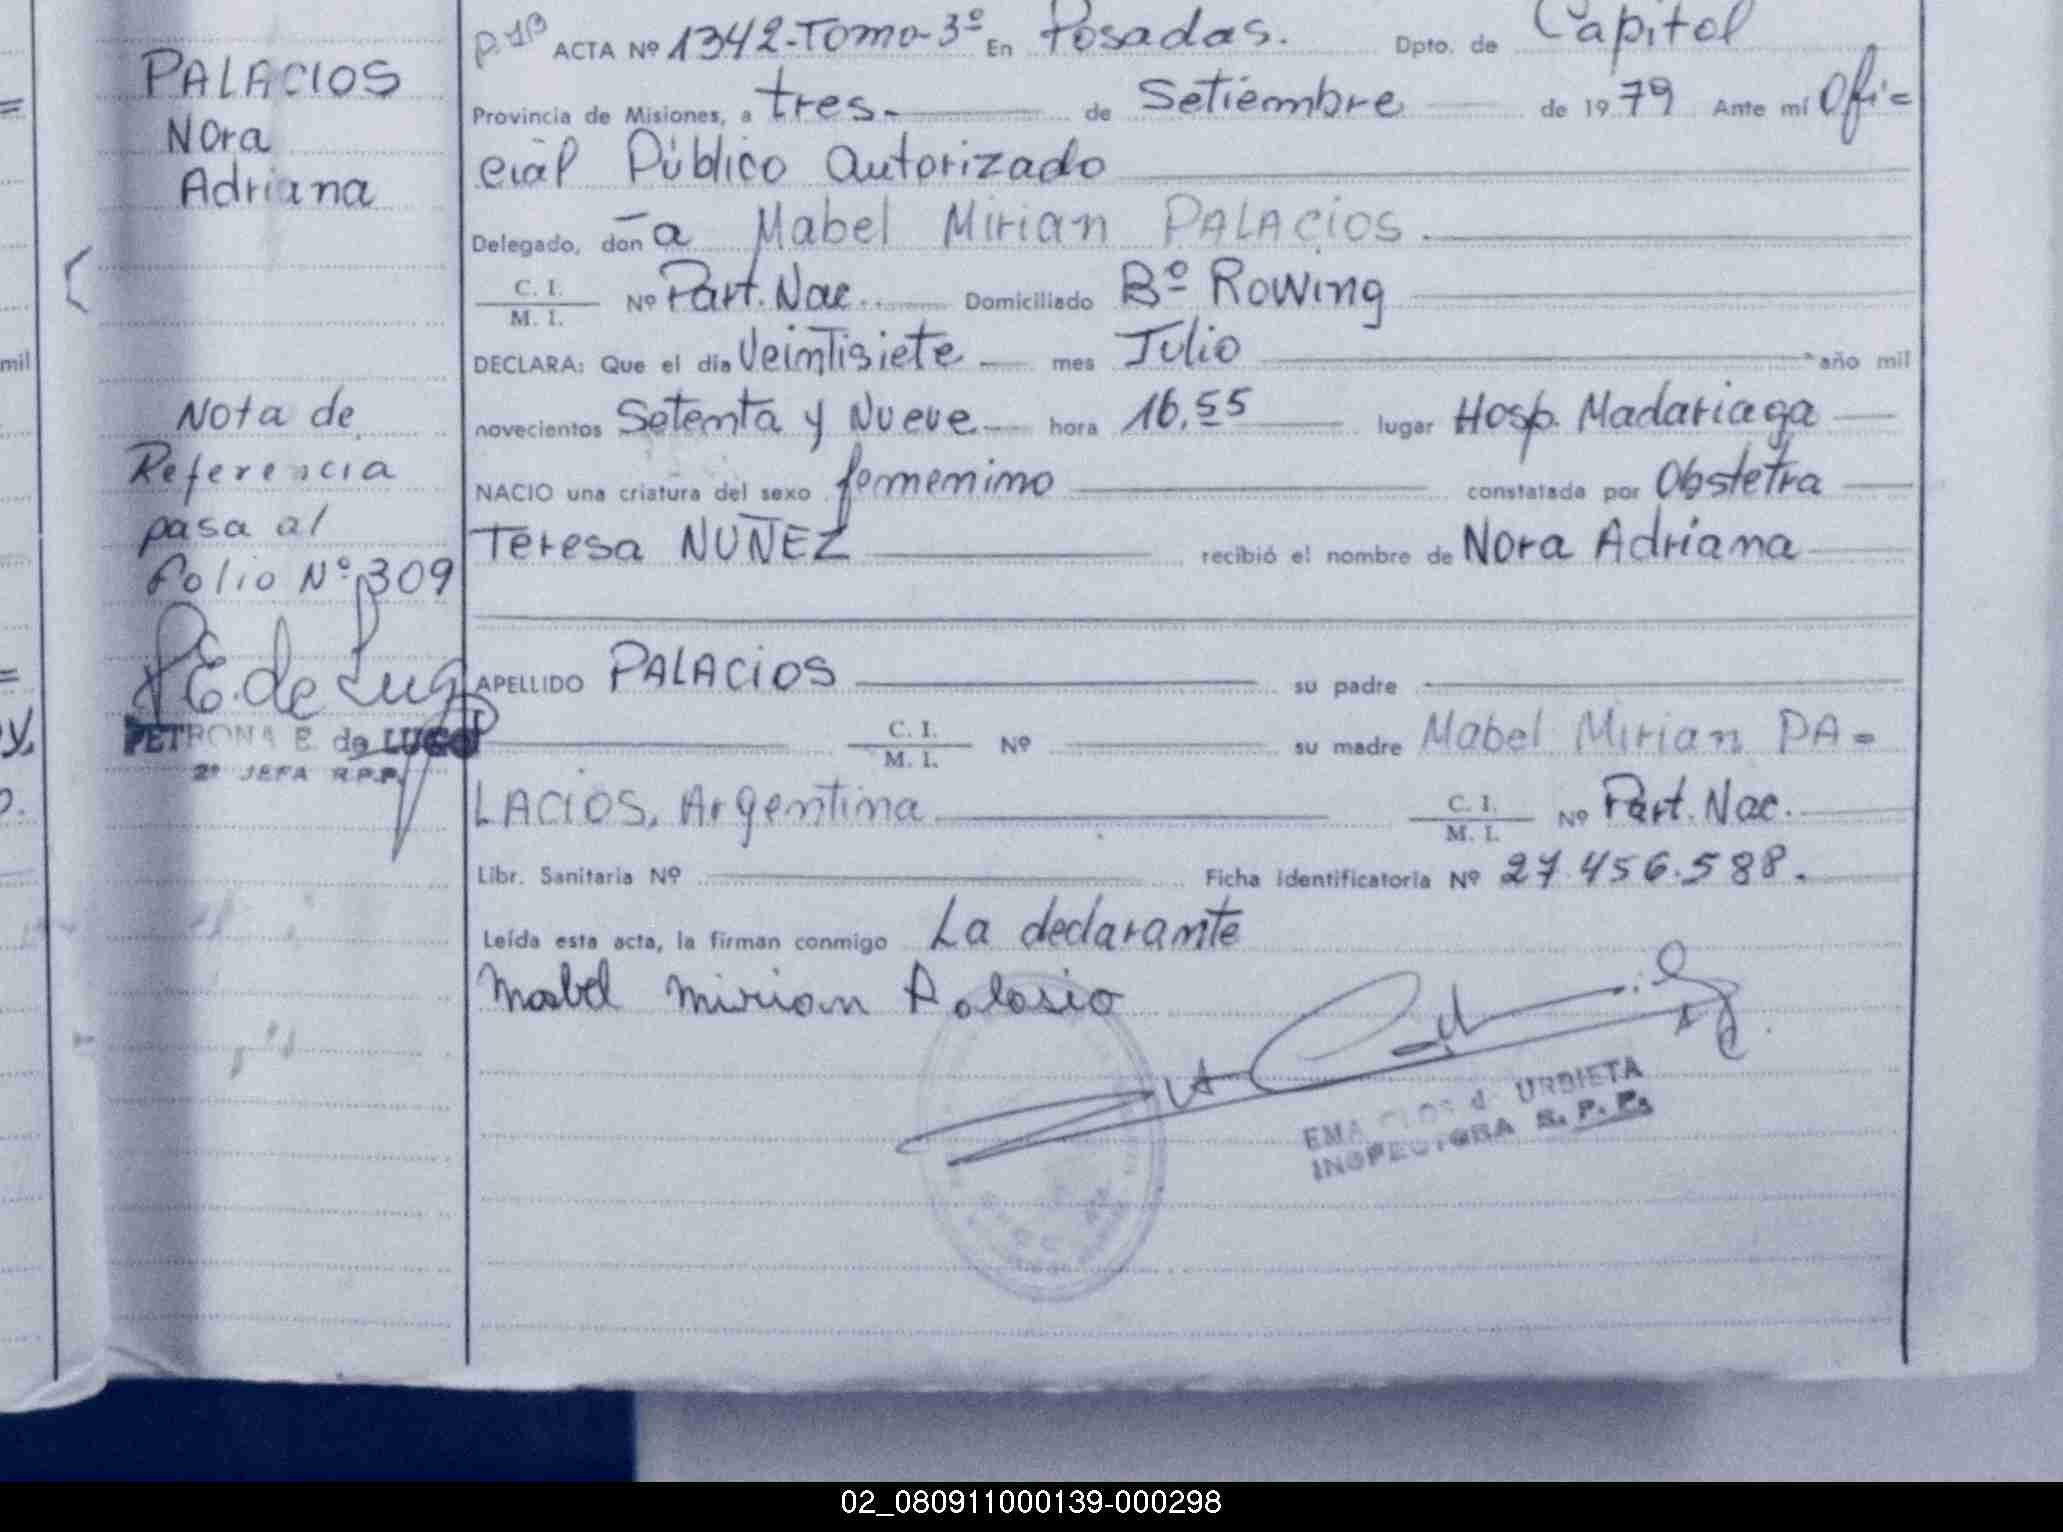 PALACIOS
Nora
Adriana
Nota de
Referencia
pasa al
folio Nº 309
P E. de Lugo
PETRONA E. de LUGO
2º JEFA R.P.P.
ACTA Nº 1342-Tomo-3º En Posadas. Dpto. de Capitol
Provincia de Misiones, a tres.- de Setiembre de 1979 Ante mí Ofi=
cial Público Autorizado
Delegado, don -a Mabel Mirian PALACIOS.
C. I.
M. I. Nº Part. Nac. Domiciliado Bº Rowing
DECLARA: Que el día Veintisiete mes Julio año mil
novecientos Setenta y Nueve hora 16.55 lugar Hosp. Madariaga
NACIO una criatura del sexo femenino constatada por Obstetra
Teresa NUÑEZ recibió el nombre de Nora Adriana
APELLIDO PALACIOS su padre
C. I.
M. I. Nº su madre Mabel Mirian PA=
LACIOS, Argentina C. I.
M. I. Nº Part. Nac.
Libr. Sanitaria Nº Ficha identificatoria Nº 27.456.588.
Leída esta acta, la firman conmigo La declarante
Mabel Mirian Palasio
EMA d URBIETA
INSPECTORA S. P. P.
mil
02_080911000139-000298